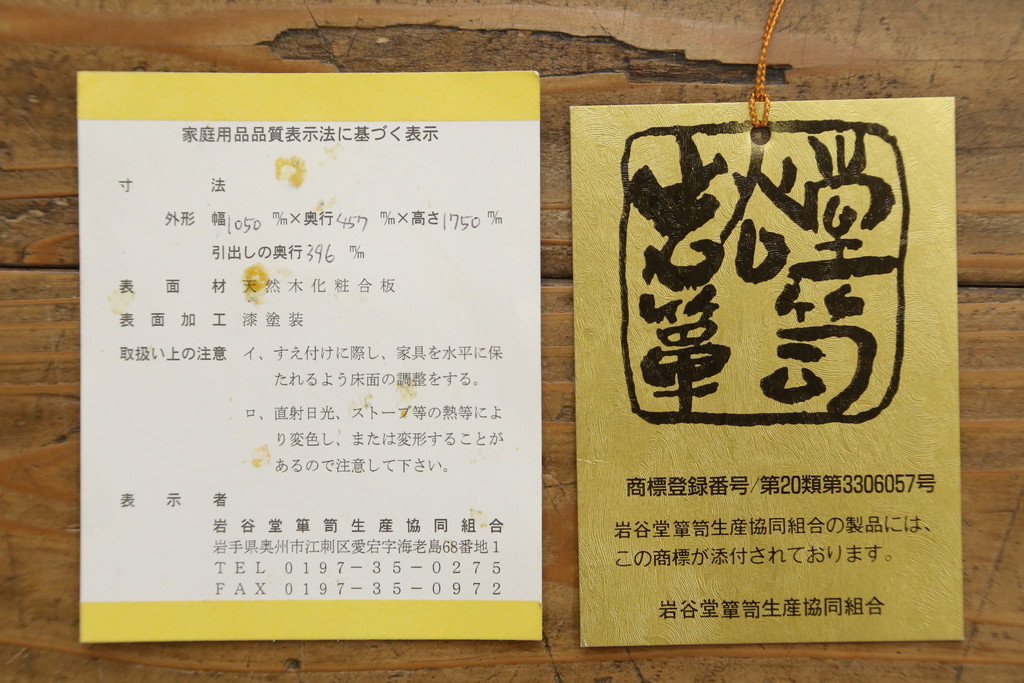 家庭用品品質表示法に基づく表示
寸法
外形 幅1050 ㎜×奥行457 ㎜×高さ1750 ㎜
引出しの奥行396 ㎜
表面材 天然木化粧合板
表面加工 漆塗装
取扱い上の注意 イ、すえ付けに際し、家具を水平に保
たれるよう床面の調整をする。
ロ、直射日光、ストーブ等の熱等によ
り変色し、または変形することが
あるので注意して下さい。
表示者
岩谷堂簞笥生産協同組合
岩手県奥州市江刺区愛宕字海老島68番地1
TEL 0197-35-0275
FAX 0197-35-0972
岩谷堂
簞笥
商標登録番号/第20類第3306057号
岩谷堂簞笥生産協同組合の製品には、
この商標が添付されております。
岩谷堂簞笥生産協同組合